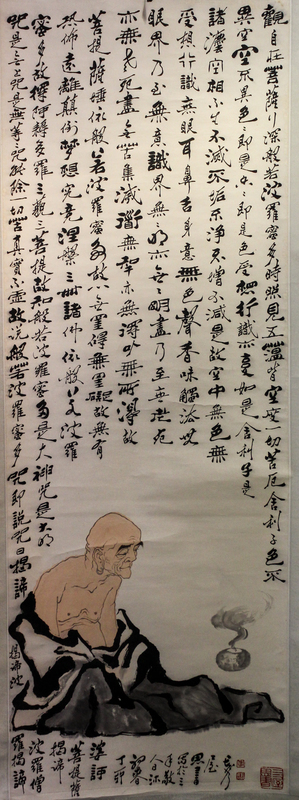 觀自在菩薩行深般若波羅蜜多時照見五蘊皆空度一切苦厄舍利子色不
異空空不異色色即是空空即是色受想行識亦復如是舍利子是
諸法空相不生不滅不垢不淨不增不減是故空中無色無
受想行識無眼耳鼻舌身意無色聲香味觸法無
眼界乃至無意識界無無明亦無無明盡乃至無老死
亦無老死盡無苦集滅道無智亦無得以無所得故
菩提薩埵依般若波羅蜜多故心無罣礙無罣礙故無有
恐怖遠離顛倒夢想究竟涅槃三世諸佛依般若波羅
蜜多故得阿耨多羅三藐三菩提故知般若波羅蜜多是大神咒是大明
咒是無上咒是無等等咒能除一切苦真實不虛故說般若波羅蜜多咒即說咒曰揭諦
揭諦波
羅揭諦
波羅僧
揭諦
菩提薩
婆訶
丁卯